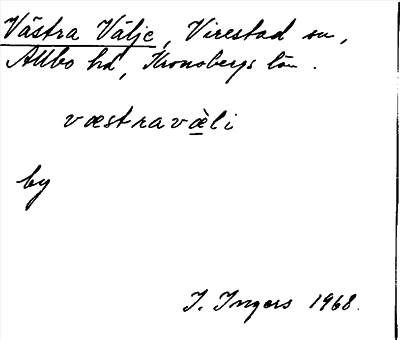 Västra Välje, Virestad sn,
Allbo hd, Kronobergs län.
væstravæ̀li
by
I. Ingers 1968.